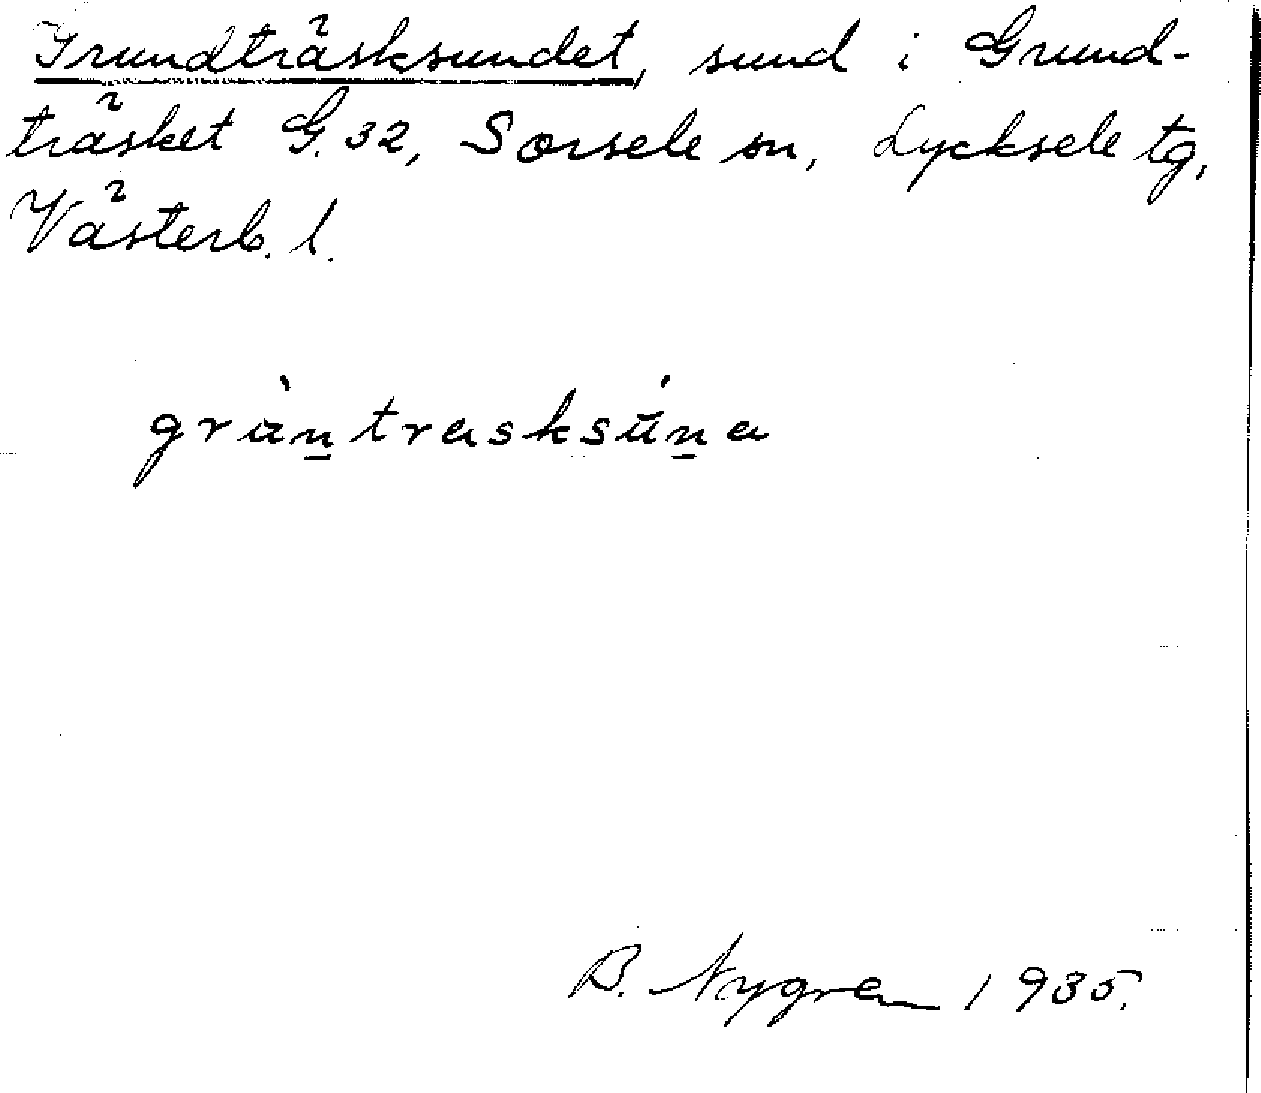 Grundträsksundet, sund i Grund-
träsket G. 32, Sorsele sn, Lycksele tg,
Västerb. l.
grùn̲trasksún̲a
B. Nygren 1935.